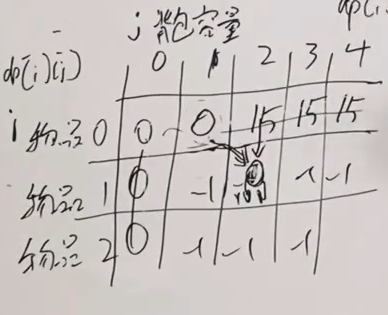 dp[i]
j 背包容量
dp[i][j]
0 1 2 3 4
i 物品 0 0 0 15 15 15
物品 1 0 -1 -1 -1
物品 2 0 -1 -1 -1